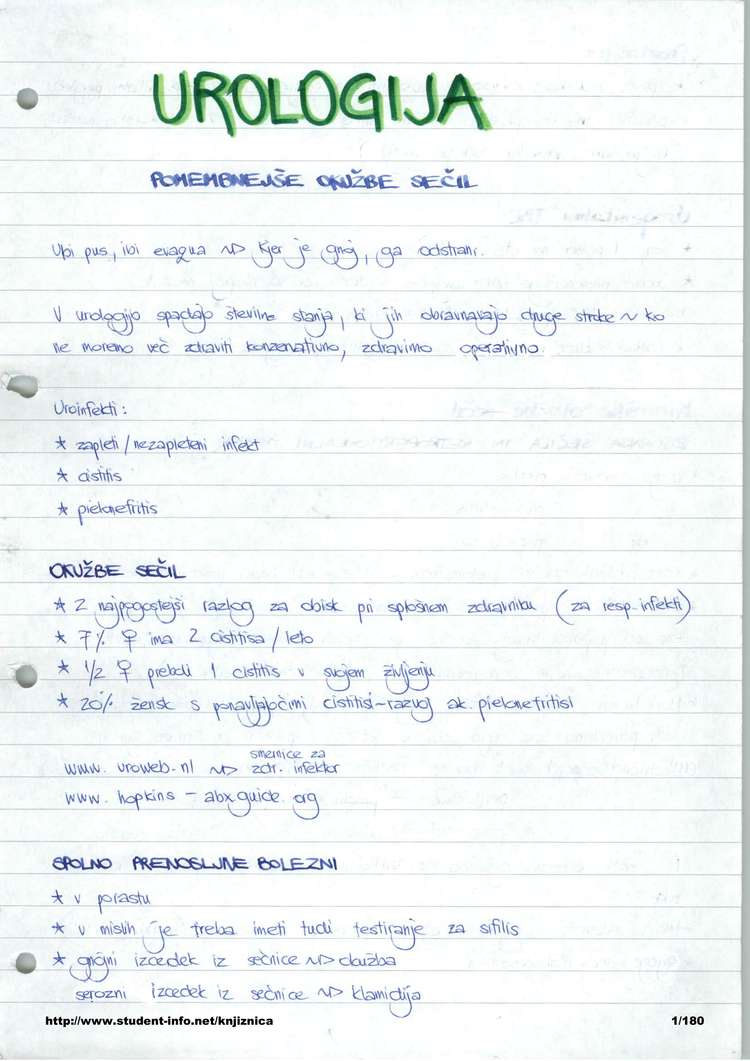 UROLOGIJA
POMEMBNEJŠE OKUŽBE SEČIL
Ubi pus, ibi evaqua ~> kjer je gnoj, ga odstrani.
V urologijo spadajo številne stanja, ki jih obravnavajo druge stroke ~ ko
ne moremo več zdraviti konzervativno, zdravimo operativno.
Uroinfekti:
* zapleti/nezapleteni infekt
* cistitis
* pielonefritis
OKUŽBE SEČIL
* 2 najpogostejši razlog za obisk pri splošnem zdravniku (za resp. infekti)
* 7% ♀ ima 2 cistitisa / leto
* 1/2 ♀ preboli 1 cistitis v svojem življenju
* 20% žensk s ponavljajočimi cistitisi ~ razvoj ak. pielonefritisi
smernice za
www. uroweb.nl ~> zdr. infektov
www. hopkins - abxguide. org
SPOLNO PRENOSLJIVE BOLEZNI
* v porastu
* v mislih je treba imeti tudi testiranje za sifilis
* gnojni izcedek iz sečnice ~>
serozni izcedek iz sečnice ~> klamidija
http://www.student-info.net/knjiznica
1/180